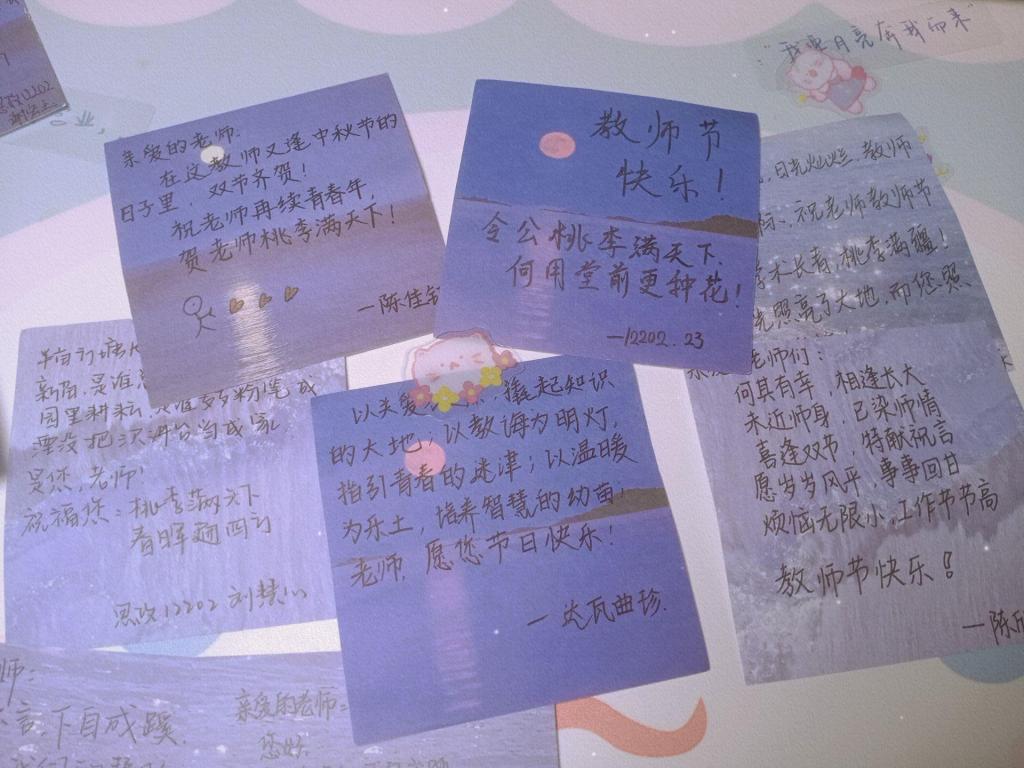 "我要月亮奔我而来"
亲爱的老师:
在这教师又逢中秋节的
日子里,双节齐贺!
祝老师再续青春年,
贺老师桃李满天下!
—陈佳
教师节
快乐!
令公桃李满天下,
何用堂前更种花!
—12202. 23
日光灿烂,教师
祝老师教师节
学术长青,桃李满疆!
光照亮了大地,而您照
老师们:
何其有幸,相逢长大
未近师身,已染师情
喜逢双节,特献祝言
愿岁岁风平,事事回甘
烦恼无限小,工作节节高
教师节快乐!
—陈
是谁
园里耕耘,
是您,老师!
祝福您:桃李满天下
春晖遍四方
思政12202 刘慧心
以关爱 撬起知识
的大地;以教诲为明灯,
指引青春的迷津;以温暖
为乐土,培养智慧的幼苗!
老师,愿您节日快乐!
—达瓦曲珍
师:
言,下自成蹊.
亲爱的老师:
您好:
12202